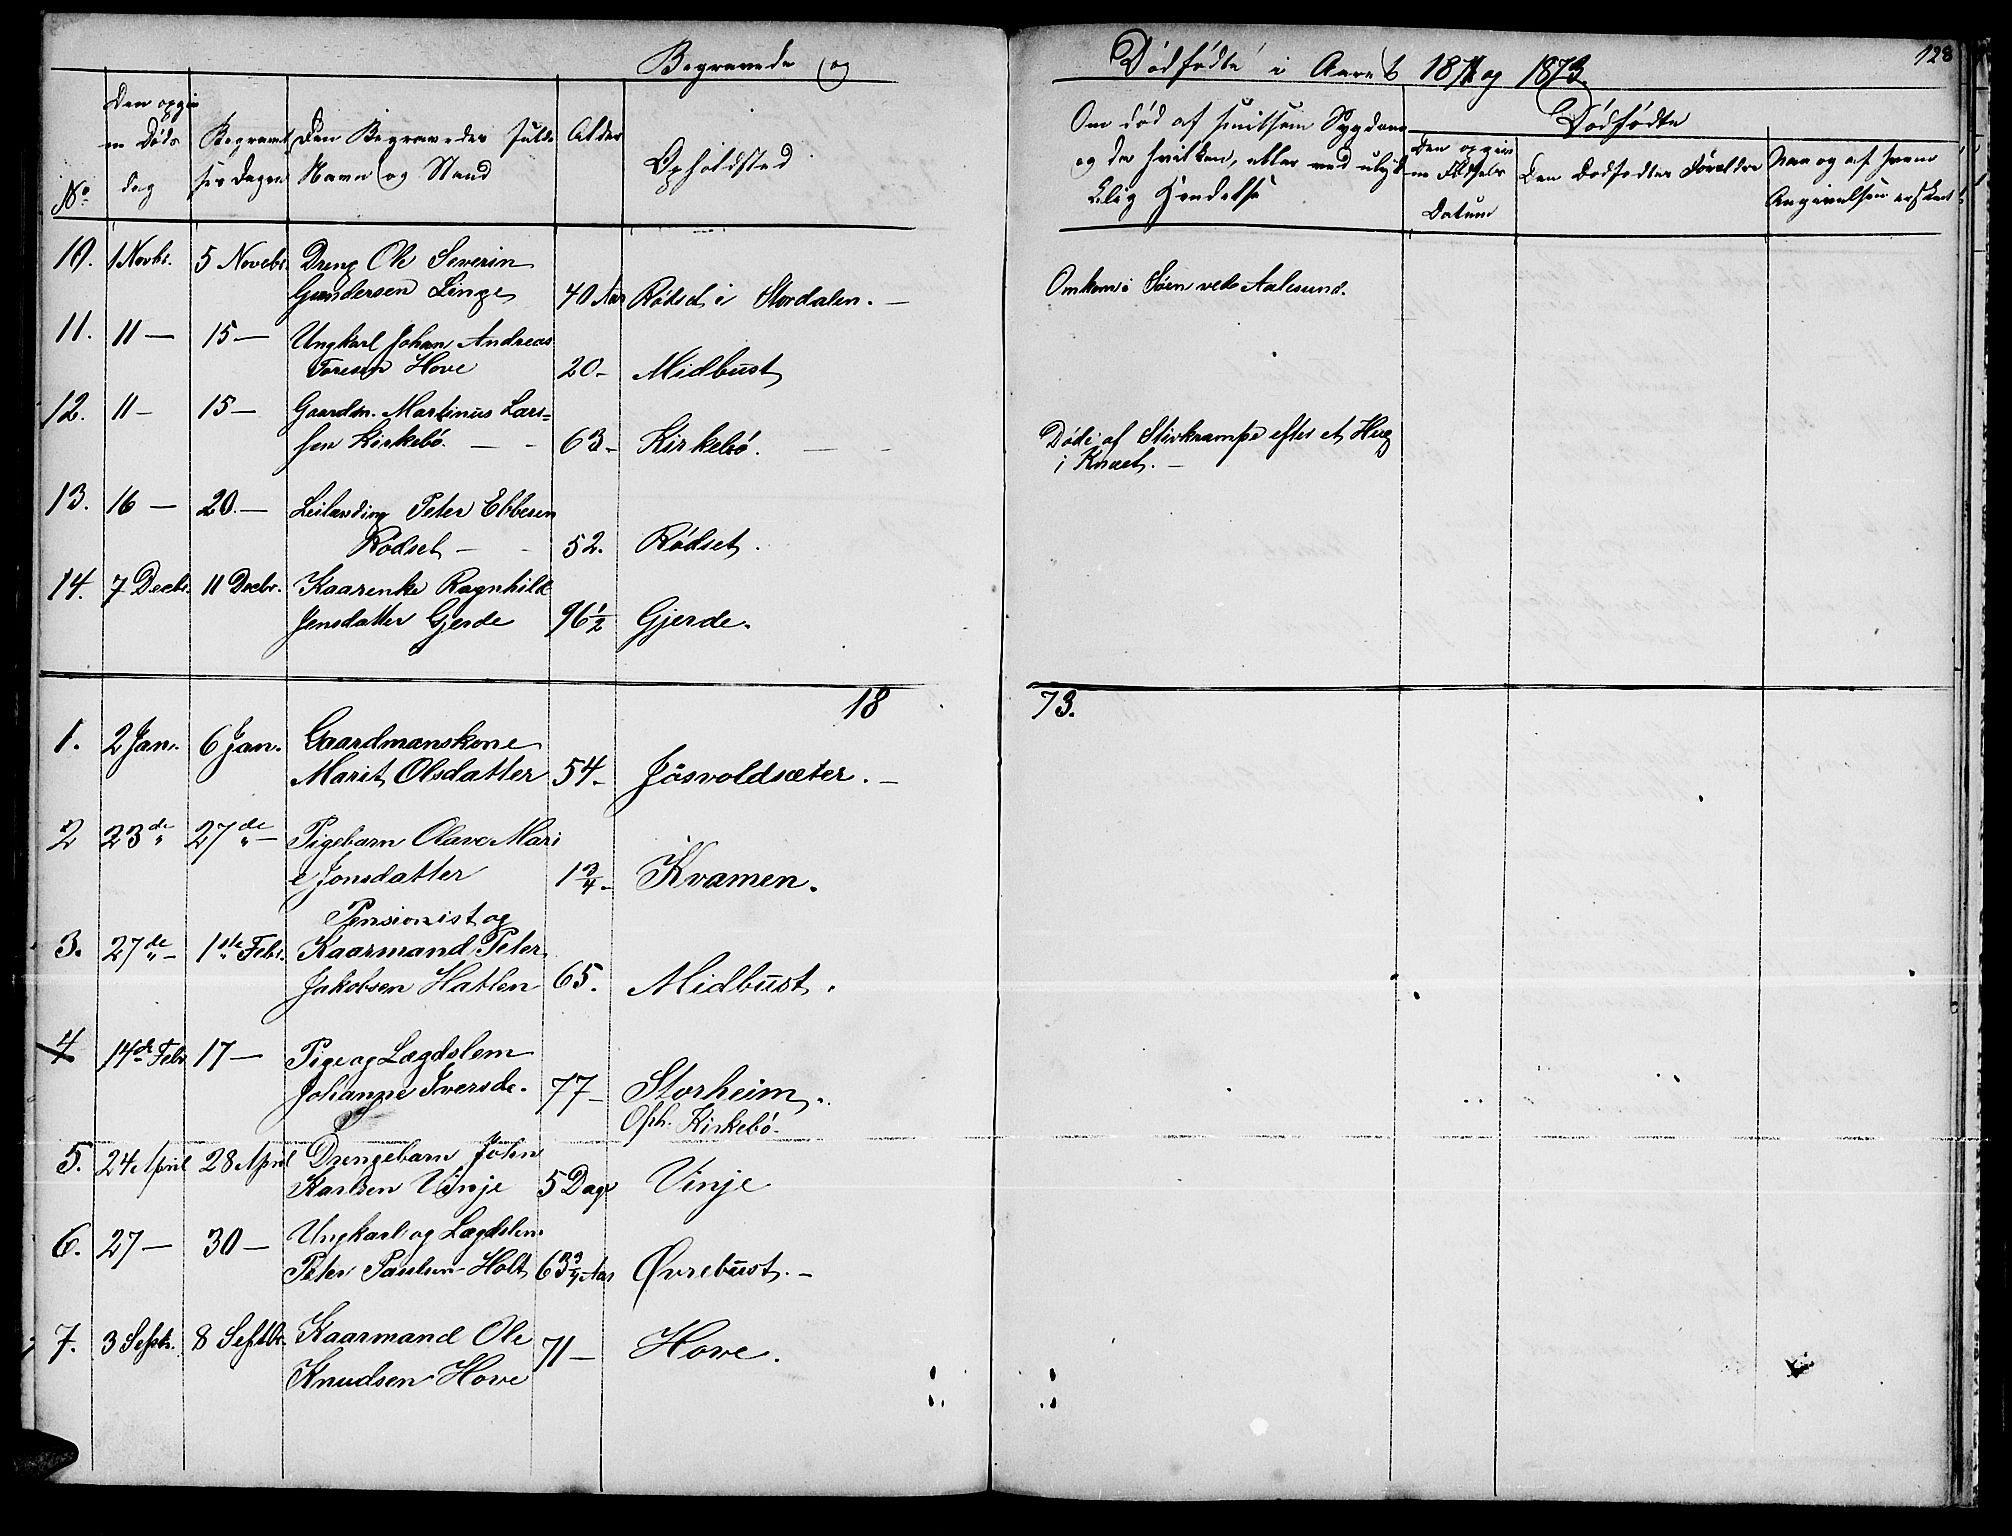 Begravede og
Dødfødte i Aaret 1871 og 1873.
128
No
Den opgivne Døds dag
Begravelsesdagen
Den Begravedes fulde Navn og Stand
Alder
Opholdsted
Om død af smitsom Sygdom og da hvilken, eller ved ulykkelig Hændelse
Dødfødte
Den opgivne Fødsels Datum
Den Dodfodtes Forældre
Naar og af hvem Angivelsen er skeet
10. 1 Novbr. 5 Novebr. Dreng Ole Severin
Gundersen Linge 40 Aar Rødset i Stordalen. —
Omkom i Søen ved Aalesund.
11. 11 — 15 — Ungkarl Johan Andreas
Toresen Hove 20 - Midbust
12. 11 - 15 — Gaardm. Martinus Lars=
sen Kirkebö. — - 63 - Kirkebö. —
Døde af Stivkrampe efter et Hug
i Knæet. —
13. 16 — 20. — Leilending Peter Ebbesen
Rødset — - 52. Rødset.
14. 7 Decbr. 11 Decbr. Kaarenke Ragnhild
Jensdatter Gjerde 96½ Gjerde.
18 73.
1. 2 Jan. 6 Jan. Gaardmanskone
Marit Olsdatter 54 - Jösvoldsæter. —
2 23de " 27de " — Pigebarn Olave Mari
e Jonsdatter 1¾ - Kvamen.
Pensionist og
3. 27de " - 1ste Febr. Kaarmand Peter
Jakobsen Hatlen 65. Midbust.
4 14de Febr 17 — Pige og Lægdslem
Johanne Iversd. 77 - Storheim.
Oph. Kirkebö.
5. 24 April 28 April Drengebarn John
Karlsen Vinje 5 Dage Vinje
6. 27 — 30 — Ungkarl og Lægdslem
Peter Paulsen Holt 63¾ Aar Øvrebust. —
7. 3 Septr. 8 Septbr. Kaarmand Ole
Knudsen Hove 71 — Hove.